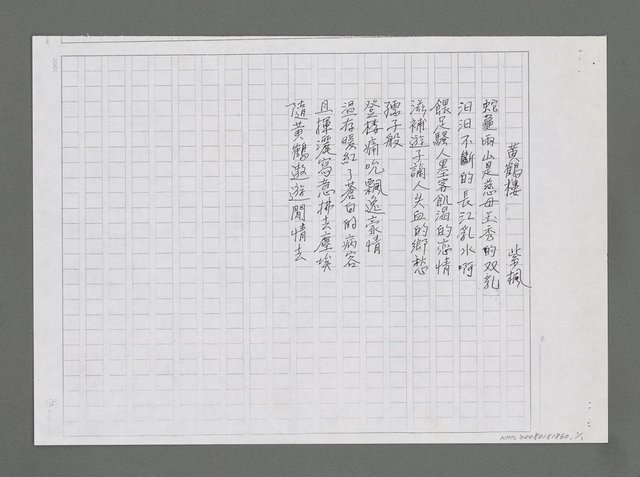 黃鶴楼 紫楓
蛇龜兩山是慈母玉秀的双乳
汩汩不斷的長江乳水啊
餵足騷人墨客飢渴的戀情
滋補遊子誦人失血的鄉愁
孺子般
登楼痛吮飄逸豪情
温存暖紅了蒼白的病容
且揮灑寫意拂去塵埃
隨黃鶴遨遊閒情去
NMTL20080181860, 1/1